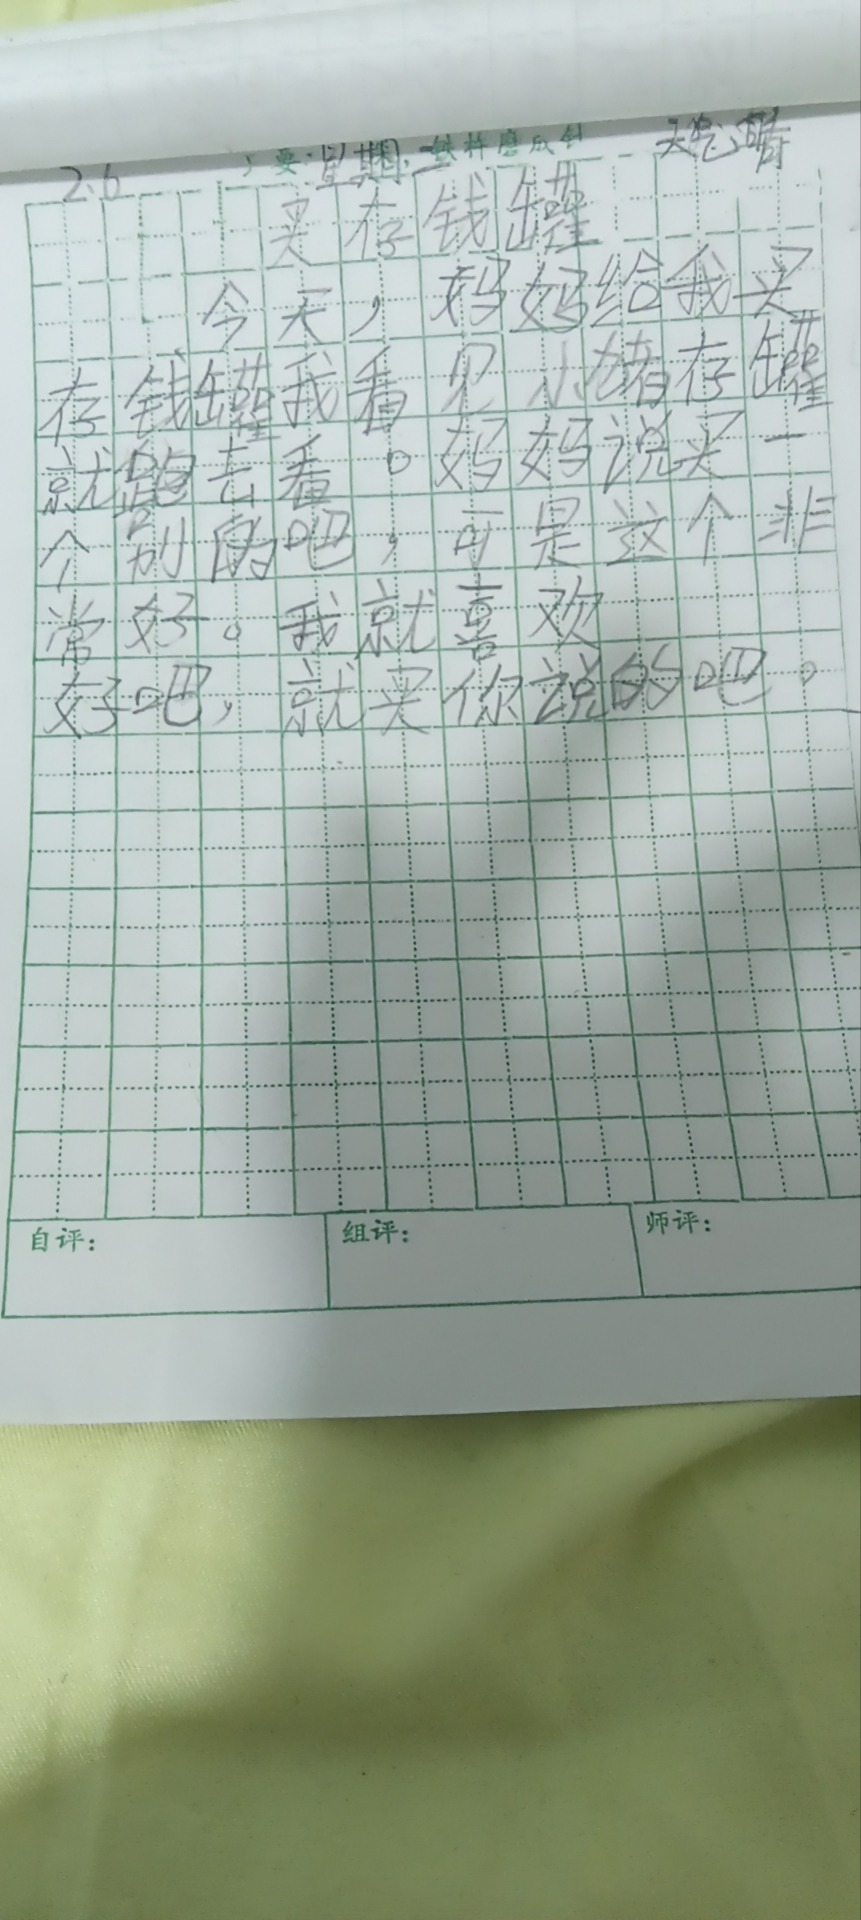 2.6 星期二 天气:晴
要 铁杵磨成针
买存钱罐
今天,妈妈给我买
存钱罐我看见小猪存罐
就跑去看。妈妈说买一
个别的吧,可是这个非
常好。我就喜欢
好吧,就买你说的吧。
自评: 组评: 师评: